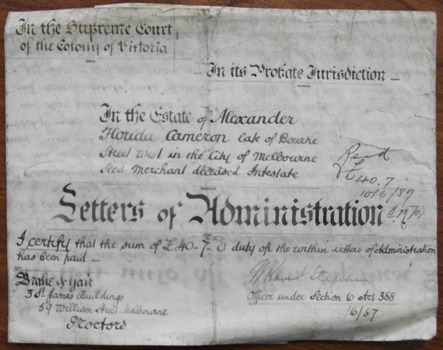 In the Supreme Court
of the Colony of Victoria
In its Probate Jurisdiction
In the Estate of Alexander
Florida Cameron late of Bourke
Street West in the City of Melbourne
Seed Merchant deceased Intestate
£40.7.
10/6/87
Letters of Administration
I certify that the sum of £40-7-0 duty on the within letters of Administration
has been paid
Officer under Section 6 Act 388
/6/87
3 St James Buildings
59 William Street Melbourne
Proctors